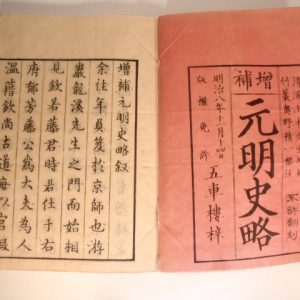 増補
元明史略
明治八年十一月十四日
版權免許
五車樓梓
增補元明史略叙
余往年負笈於京師也游
巖龍溪先生之門而始相
見欽若藤君時君仕于右
府郁芳藤公為大夫為人
温藉欽尚古道每以官暇